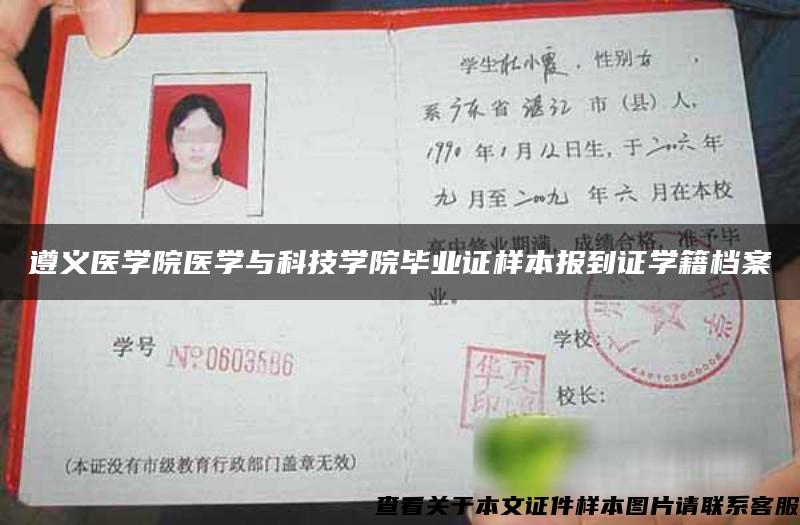 学生杜小霞，性别女，
系广东省湛江市（县）人，
1990年1月12日生，于二〇〇六年
九月至二〇〇九年六月在本校
高中修业期满，成绩合格，准予毕
业。
遵义医学院医学与科技学院毕业证样本报到证学籍档案
学号 №0603586
学校：
华夏
印
校长：
（本证没有市级教育行政部门盖章无效）
查看关于本文证件样本图片请联系客服